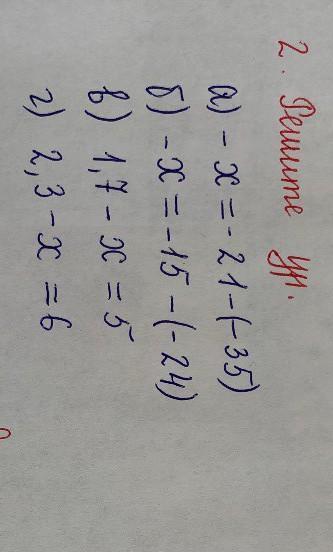 2. Решите ур.
а) - x = - 21 - (-35)
б) - x = - 15 - (- 24)
в) 1,7 - x = 5
г) 2,3 - x = 6